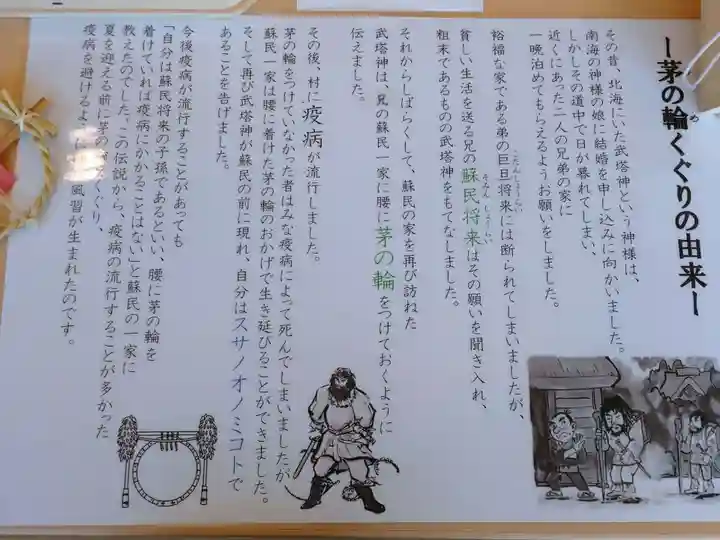 ー茅の輪くぐりの由来ー
め
その昔、北海にいた武塔神という神様は、
南海の神様の娘に結婚を申し込みに向かいました。
しかしその道中で日が暮れてしまい、
近くにあった二人の兄弟の家に
一晩泊めてもらえるようお願いをしました。
裕福な家である弟の巨旦将来には断られてしまいましたが、
こたんしょうらい
貧しい生活を送る兄の蘇民将来はその願いを聞き入れ、
そみんしょうらい
粗末であるものの武塔神をもてなしました。
それからしばらくして、蘇民の家を再び訪ねた
武塔神は、兄の蘇民一家に腰に茅の輪をつけておくように
伝えました。
その後、村に疫病が流行しました。
茅の輪をつけていなかった者はみな疫病によって死んでしまいましたが
蘇民一家は腰に着けた茅の輪のおかげで生き延びることができました。
そして再び武塔神が蘇民の前に現れ、自分はスサノオノミコトで
あることを告げました。
今後疫病が流行することがあっても
「自分は蘇民将来の子孫であるといい、腰に茅の輪を
着けていれば疫病にかかることはない」と蘇民の一家に
教えたのでした。この伝説から、疫病の流行することが多かった
夏を迎える前に茅の くぐり、
疫病を避けるよ 風習が生まれたのです。